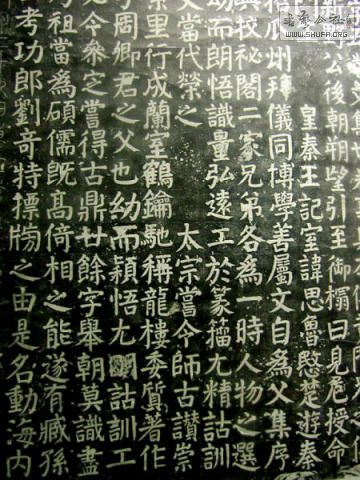 公後朝朔望引至御榻曰見危授命
皇秦王記室諱思魯愍楚遊秦
州拜儀同博學善屬文自為父集序
校秘閣二家兄弟各為一時人物之選
幼而朗悟識量弘遠工於篆籀尤精詁訓
當代榮之 太宗嘗令師古讚崇
里行成蘭室鶴鑰馳稱龍樓委質著作
周卿君之父也幼而穎悟尤明詁訓工
令參定嘗得古鼎廿餘字舉朝莫識盡
祖當為碩儒既高倚相之能遂有臧孫
考功郎劉奇特標牓之由是名動海內